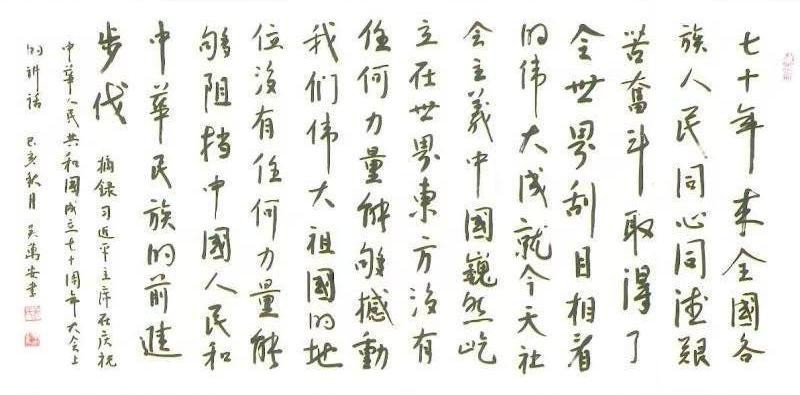 七十年来全國各
族人民同心同德艰
苦奮斗取得了
全世界刮目相看
的伟大成就今天社
会主義中國巍然屹
立在世界東方没有
任何力量能够撼動
我们伟大祖國的地
位没有任何力量能
够阻挡中國人民和
中華民族的前進
步伐
摘録习近平主席在庆祝
中華人民共和國成立七十周年大会上
的讲话 己亥秋月 吴萬安書